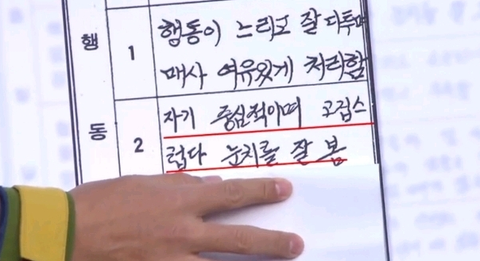 행
동
1
행동이 느리고 잘 다투며
매사 여유있게 처리함
2
자기 중심적이며 고집스
럽다 눈치를 잘 봄